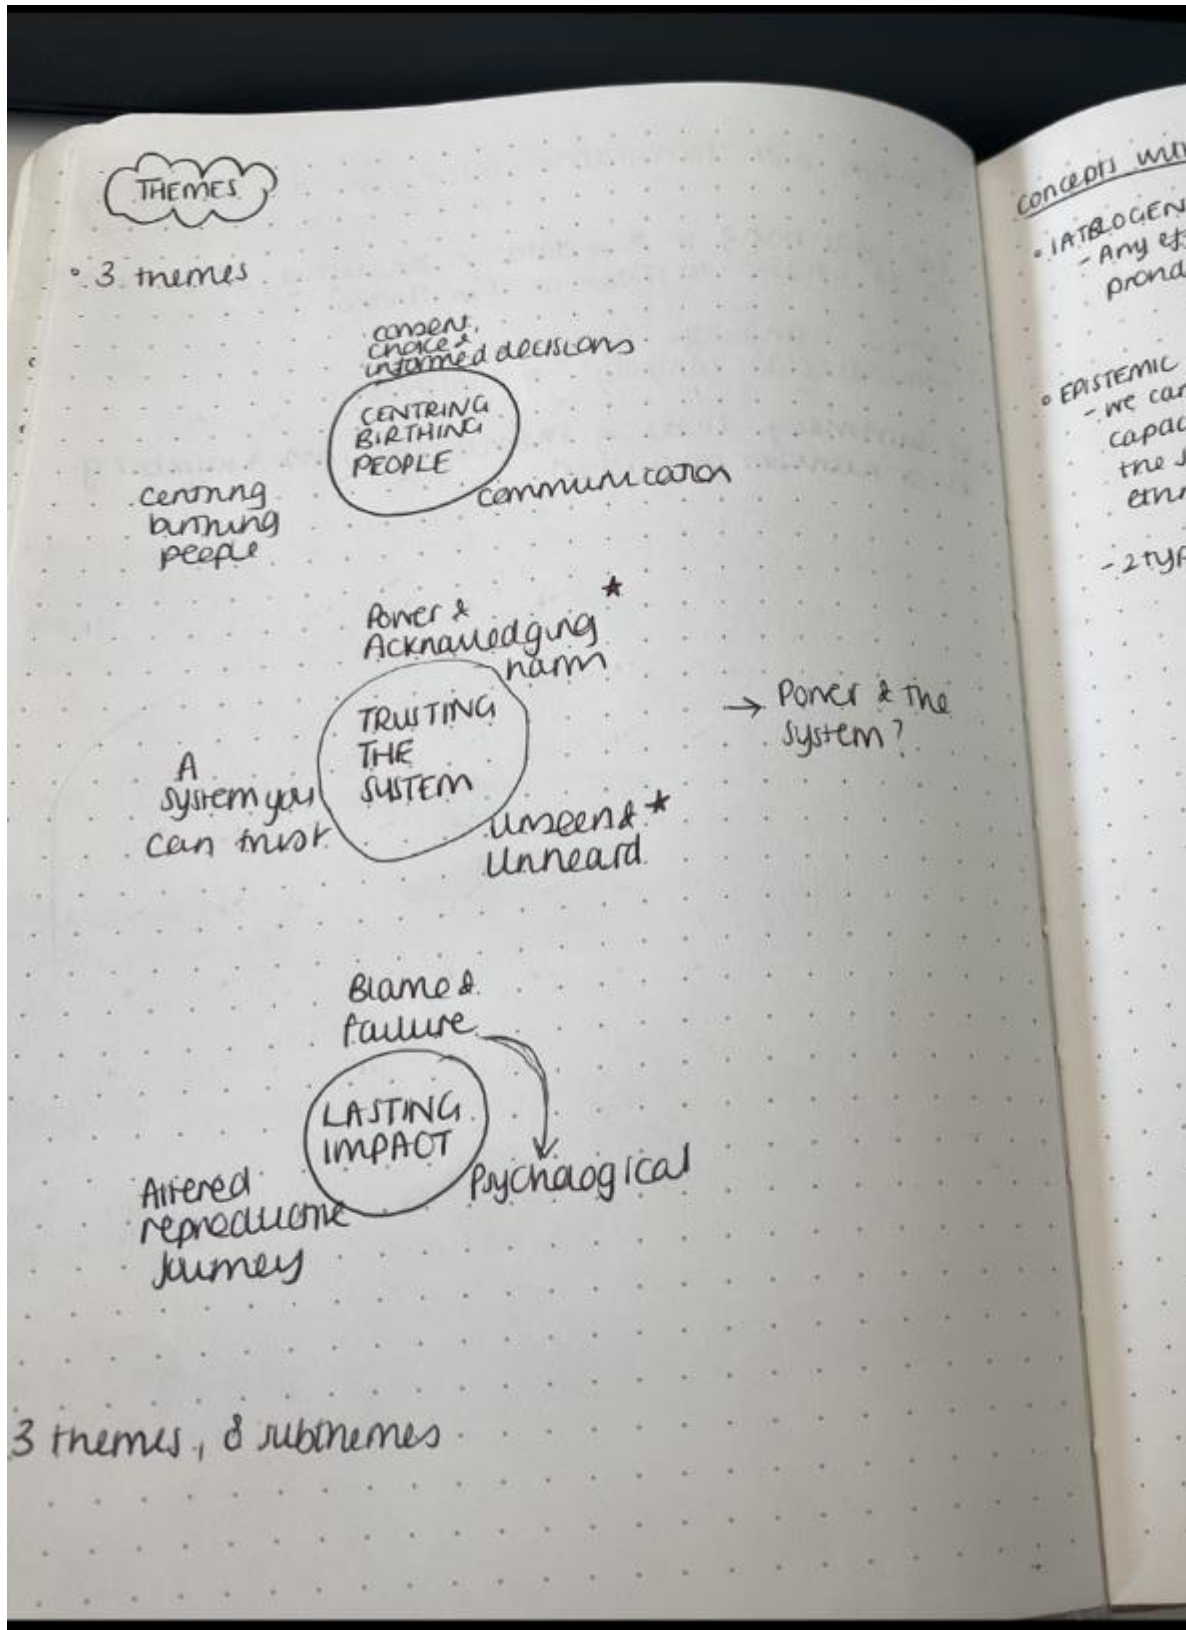 THEMES
• 3 themes
consent,
choice &
informed decisions
CENTRING
BIRTHING
PEOPLE
communication
Centring
birthing
people
Power &
Acknowledging ★
harm
TRUSTING
THE
SYSTEM
→ Power & the
system?
A
system you
can trust
Unseen & ★
Unheard
Blame &
failure
LASTING
IMPACT
Psychological
Altered
reproductive
journey
3 themes, 8 subthemes
Concepts
• IATROGEN
- Any
• EPISTEMIC
- we can
the
- 2 TYP